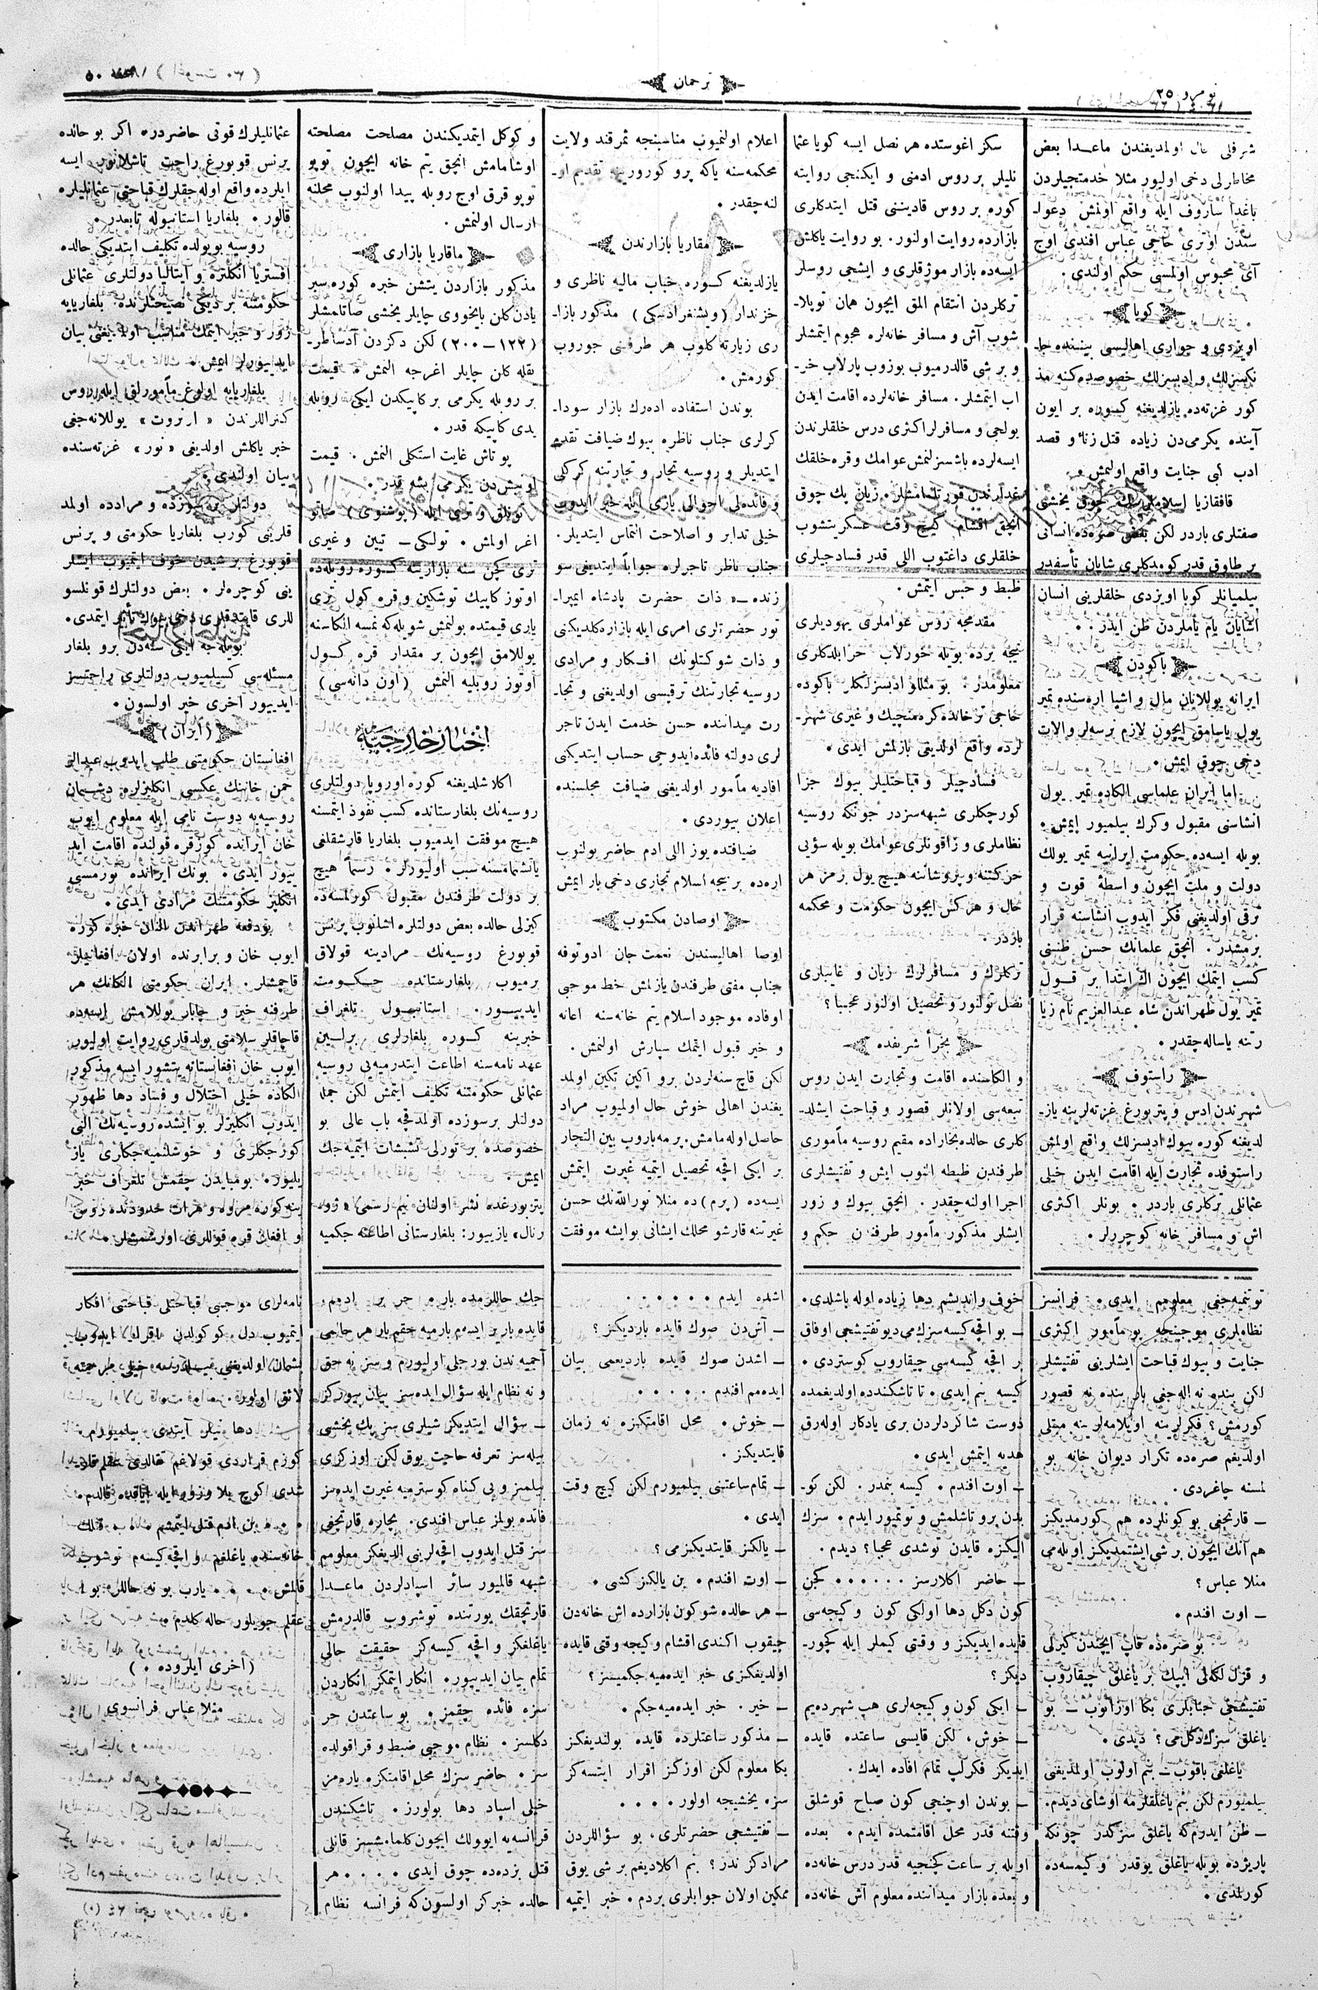 ترجمان
شرفلی حال اولمدیغندن ماعدا بعض
مخاطرلی دخی اولیور مثلا خدمتجیلردن
باغدا ساروف ایله واقع اولمش دعوا-
سندن اوتری حاجی عباس افندی اوچ
آی محبوس اولمسی حکم اولندی.
کوبا
اویزدی و جواری اهالیسی بیننده جا-
نکسزلك و ادبسزلك خصوصده کنه مذ
کور غزته‌ده یازلدیغنه کسوره بر ایون
آینده یکرمی‌دن زیاده قتل زنا و قصد
ادب کبی جنایت واقع اولنمش.
قافقازیا اسلاملرینك چوق یخشی
صفتلری باردر لکن بعض صره‌ده انسانی
بر طاوق قدر کورمدکلری شایان تأسفدر
بیلمیانلر کوبا اویزدی خلقلرینی انسان
اشایان یام یاملردن ظن ایدر.
باکودن
ایرانه یوللانان مال و اشیا اره‌سنده تمیر
یول یاسامق ایچون لازم نرسه‌لر و الات
دخی چوق ایمش.
اما ایران علماسی الکاده تمیر یول
انشاسنی مقبول و کرك بیلمیور ایمش.
بویله ایسه‌ده حکومت ایرانیه تمیر یولك
دولت و ملت ایچون واسطهٔ قوت و
ترقی اولدیغنی فکر ایدوب انشاسنه قرار
برمشدر. انجق علمانك حسن ظننی
کسب ایتمك ایچون الك ابتدا بر قول
تمیر یول طهراندن شاه عبدالعزیم نام زیا
رتنه یاساله‌چقدر.
راستوف
شهرندن ادس و پتربورغ غزته‌لرینه یاز-
لدیغنه کوره بیوك ادبسزلك واقع اولمش
راستوفده تجارت ایله اقامت ایدن خیلی
عثمانلی ترکلری باردر. بونلر اکثری
اش و مسافر خانه کوچررلر.
سکز اغوستده هر نصل ایسه کویا عثما
نلیلر بر روس ادمنی و ایکنجی روایته
کوره بر روس قادیننی قتل ایتدکلری
بازارده روایت اولنور. بو روایت یاکلش
ایسه‌ده بازار موژقلری و ایشچی روسلر
ترکلردن انتقام المق ایچون همان توپلا-
شوب آش و مسافر خانه‌لره هجوم ایتمشلر
و بر شی قالدرمیوب بوزوب پارلاب خر-
اب ایتمشلر. مسافر خانه‌لرده اقامت ایدن
یولجی و مسافرلر اکثری درس خلقلرندن
ایسه‌لرده باشسزلنمش عوامك و قره خلقك
غدارندن قورتلمامشلر. زیان پك چوق
انچق اقشام کیچ وقت عسکر یتشوب
خلقلری داغتوب اللی قدر فسادجیلری
ظبط و حبس ایتمش.
مقدمجه روس عواملری یهودیلری
نیجه یرده بویله خورلاب خرابلدکلری
معلومدر. بو مثللو ادبسزلکلر باکوده
حاجی ترخانده کره‌منچیك و غیری شهر-
لرده واقع اولدیغی یازلمش ایدی.
فسادچیلر و قباحتلیلر بیوك جزا
کورچکلری شبهه‌سزدر چونکه روسیه
نظاملری و زاقونلری عوامك بویله سؤیی
حرکتنه و پروشاننه هیچ یول برمز هر
حال و هرکس ایچون حکومت و محکمه
باردر.
ترکلرك و مسافرلرك زیان و غایبلری
نصل تولنور و تحصیل اولنور عجبا؟
بخرأ شریفده
و الکاسنده اقامت و تجارت ایدن روس
تبعه‌سی اولانلر قصور و قباحت ایشلد-
کلری حالده بخاراده مقیم روسیه مأموری
طرفندن ظبطه النوب ایش و تفتیشلری
اجرا اولنه‌چقدر. انچق بیوك و زور
ایشلر مذکور مأمور طرفندن حکم و
اعلام اولنمیوب مناسبنجه ثمرقند ولایت
محکمه‌سنه یاکه پروکورورینه تقدیم او-
لنه‌چقدر.
مقاریا بازارندن
یازلدیغنه کسوره جناب مالیه ناظری و
خزندار (ویشنغرادسکی) مذکور بازا-
ری زیارته کلوب هر طرفنی جوروب
کورمش.
بوندن استفاده اده‌رك بازار سودا-
کرلری جناب ناظره بیوك ضیافت تقدیم
ایتدیلر و روسیه تجار و تجارتنه کرکی
و فائده‌لی احوالی یازی ایله خبر ایدوب
خیلی تدابر و اصلاحت التماس ایتدیلر.
جناب ناظر تاجرلره جواباً ایتدیغی سو
زنده – ذات حضرت پادشاه ایمپرا-
تور حضرتلری امری ایله بازاره کلدیکنی
و ذات شوکتلونك افکار و مرادی
روسیه تجارتنك ترقیسی اولدیغنی و تجا-
رت میداننده حسن خدمت ایدن تاجر
لری دولته فائده‌ایدوجی حساب ایتدیکنی
افادیه مأمور اولدیغنی ضیافت مجلسنده
اعلان بیوردی.
ضیافتده یوز اللی ادم حاضر بولنوب
اره‌ده بر نیجه اسلام تجاری دخی بار ایمش
اوصادن مکتوب
اوصا اهالیسندن نعمت جان ادوتوفه
جناب مفتی طرفندن یازلمش خط موجبی
اوفاده موجود اسلام یتم خانه‌سنه اعانه
و خبر قبول ایتمك سپارش اولنمش.
لکن قاچ سنه‌لردن برو آکین تکین اولمد
یغندن اهالی خوش حال اولمیوب مراد
حاصل اوله‌مامش. پرمه باروب بین التجار
بر ایکی اقچه تحصیل ایتمیه غیرت ایتمش
ایسه‌ده (پرم)ده منلا نورالله‌نك حسن
غیرتنه قارشو محلك ایشانی بوایشه موفقت
و کوکل ایتمدیکندن مصلحت مصلحته
اوشامامش انچق یتم خانه ایچون توپو
توپو قرق اوچ روبله پیدا اولنوب محلنه
ارسال اولنمش.
ماقاریا بازاری
مذکور بازاردن یتشن خبره کوره سبر
یادن کلن بایخووی چایلر بخشی صاتلمشلر
(۱۲۲–۲۰۰) لکن دکزدن آدساطر-
یقله کلن چایلر اغرجه المش. قیمت
بر روبله یکرمی بر کاپیکدن ایکی روبله
یدی کاپیکه قدر.
یو تاش غایت استکلی النمش. قیمت
اون بیش‌دن یکرمی بشه قدر.
تونلق و تری ایله (پوشنوی) صاتو
اغر اولمش. تولکی – تیین و غیری
تری کچن سنه بازارینه کسوره روبله‌ده
اوتوز کاپیك توشکین و قره کول تری
یاری قیمتده بولنمش شویله‌که نمسه الکاسنه
یوللامق ایچون بر مقدار قره کول
اوتوز روبلیه النمش (اون دانه‌سی)
اخبار خارجیه
اکلاشلدیغنه کوره اوروپا دولتلری
روسیه‌نك بلغارستانده کسب نفوذ ایتمسنه
هیچ موفقت ایدمیوب بلغاریا قارشقلغی
یانشمامسنه سبب اولیورلر. رسماً هیچ
بر دولت طرفندن مقبول کورلمسه‌ده
کیزلی حالده بعض دولتلره اشلنوب برنس
قوبورغ روسیه‌نك مرادینه قولاق
برمیوب بلغارستانده حکومت
ایدیور. استانبول تلغراف
خبرینه کوره بلغارلری برلین
عهد نامه‌سنه اطاعت ایتدرمه‌نی روسیه
عثمانلی حکومتنه تکلیف ایتمش لکن جمله
دولتلر برسوزده اولمدقجه باب عالی بو
خصوصده بر تورلی تشبثات ایتمیه‌جك
ایمش.
پتربورغده نشر اولنان نیم رسمی «ژور
رنال» یازیور: بلغارستانی اطاعته جکمیه
عثمانلیلرك قوتی حاضردره اکر بو حالده
برنس قوبورغ راحت تاشلانوب ایسه
ایلرده واقع اوله‌جقلرك قباحتی عثمانلیلره
قالور. بلغاریا استانبوله تابعدر.
روسیه بویولده تکلیف ایتدیکی حالده
افستریا انکلتره و ایتالیا دولتلری عثمانلی
حکومتنه بردیکی نصیحتلرنده: بلغاریایه
زور و جبر ایتمك مناسب اولدیغنی بیان
ایدیورلر ایمش.
بلغاریایه اولوغ مأمورلق ایله روس
کنراللرندن «ارنروت» یوللانه‌جغی
خبر یاکلش اولدیغی «نور» غزته‌سنده
بیان اولندی.
دولتلر بر سوزده و مرادده اولمد
قلرینی کورب بلغاریا حکومتی و پرنس
قوبورغ بر شیدن خوف ایتمیوب ایشلر
ینی کوچرلر. بعض دولتلرك قونلسو
للری قایتدقلری دخی عوك تأثیر ایتمدی.
بویله‌جه ایکی سنه‌دن برو بلغار
مسئله‌سی کسیلمیوب دولتلری راحتسز
ایدیور آخری خبر اولسون.
(ایران)
افغانستان حکومتنی طلب ایدوب عبدالر
حمن خانینك عکسی انکلیزلره دشمان
روسیه‌یه دوست نامی ایله معلوم ایوب
خان ایرانده کوزقره قولنده اقامت اید
ییور ایدی. بونك ایرانده تورمسی
انکلیز حکومتنك مرادی ایدی.
بودفعه طهراندن النان خبره کوره
ایوب خان و برابرنده اولان افغانیلر
قاچمشلر. ایران حکومتی الکانك هر
طرفنه خبر و چاپار یوللامش ایسه‌ده
قاچاقلر سلامتی بولدقلری روایت اولیور
ایوب خان افغانستانه یتشور ایسه مذکور
الکاده خیلی اختلال و فساد دها ظهور
ایدوب انکلیزلر بو ایشده روسیه‌نك الی
کورجکلری و خوشلنمیه‌جکلری یاز
یلیور. بومبایدن چقمش تلغراف خبر
ینه کوره مروه و هرات حدودنده روس
و افغان قره قوللری اورشمشلر.
توتمیه‌جغی معلومم ایدی. فرانسز
نظاملری موجبنجه بو مأمور اکثری
جنایت و بیوك قباحت ایشلرینی تفتیشلر
لکن بنده نه اله‌جغی بار بنده نه قصور
کورمش؟ فکرلرینه اویلامه‌لرینه مبتلی
اولدیغم صره‌ده تکرار دیوان خانه یو
لمسنه چاغردی.
– قارتجفی بو کونلرده هم کورمدیکز
هم انك ایچون بر شی ایشتمدیکز اویله‌می
منلا عباس؟
– اوت افندم.
بو صره‌ده قاپ ایچندن کبرلی
و قزل لکه‌لی ایپك بر یاغلق چیقاروب
تفتیشجی جنابلری بکا اوزاتوب – بو
یاغلق سزك دکل‌می؟ دیدی.
یاغلغی باقوب – بنم اولوب اولمدیغنی
بیلمیورم لکن بنم یاغلقلرمه اوشای دیدم.
– ظن ایدرم‌که یاغلق سزکدر چونکه
پاریژده بویله یاغلق یوقدر و کیمسه‌ده
کورلمدی.
خوف واندیشم دها زیاده اوله باشلدی.
– بو اقچه کیسه‌سی سزك‌می دیو تفتیشجی اوفاق
بر اقچه کیسه‌سی چیقاروب کوستردی.
کیسه بنم ایدی. تا تاشکندده اولدیغمده
دوست شاکردلردن بری یادکار اوله‌رق
هدیه ایتمش ایدی.
– اوت افندم. کیسه بنمدر. لکن کو-
بدن برو تاشلمش و توتمیور ایدم. سزك
الیکزه قایدن توشدی عجبا؟ دیدم.
– حاضر اکلارسز . . . . . . کچن
کون دکل دها آولکی کون و کیچه‌سی
قایده ایدیکز و وقتی کیملر ایله کچور-
دیکز؟
– ایکی کون و کیجه‌لری هپ شهرده‌یم
– خوش، لکن قایسی ساعتده قایده
ایدیکز فکرلب تمام افاده ایدك.
– بوندن اوچنجی کون صباح قوشلق
وقتنه قدر محل اقامتمده ایدم. بعده
اویله بر ساعت کچنجیه قدر درس خانه‌ده
و بعده بازار میداننده معلوم آش خانه‌ده
اشده ایدم . . . . . .
– آش‌دن صوك قایده باردیکز؟
– اشدن صوك قایده باردیغمی بیان
ایده‌مم افندم . . . . .
– خوش. محل اقامتکزه نه زمان
قایتدیکز.
– تمام ساعتنی بیلمیورم لکن کیچ وقت
ایدی.
– یالکز قایتدیکزمی؟
– اوت افندم. بن یالکز کشی.
– هر حالده شو کون بازارده اش خانه‌دن
چیقوب اکندی اقشام و کیچه وقتی قایده
اولدیغکزی خبر ایده‌میه جکمیسز؟
– خیر. خبر ایده‌میه‌جکم.
– مذکور ساعتلرده قایده بولندیغکز
بکا معلوم لکن اوزکز اقرار ایتسه کز
سزه یخشیجه اولور . . . .
– تفتیشجی حضرتلری، بو سؤاللردن
مرادکز ندر؟ بنم اکلادیغم بر شی یوق
ممکین اولان جوابلری بردم. خبر ایتمیه
جك حاللزمده بار. جر بر ادم
قایده باریز ایسه‌م بارمیه حقم بار هر حاجمی
آجمیه‌ندن بورجلی اولیورم و سز یه حق
و نه نظام ایله سؤال ایده‌سز بیان بیورکز
– سؤال ایتدیکز شیلری سز پك یخشی
بیله‌سز تعرفه حاجت یوق لکن اوزکزی
بیلمز و بی کناه کوسترمیه غیرت ایده‌سز
فائده بولمز عباس افندی. بچاره قارتجفی
سز قتل ایدوب اقچه‌لرینی الدیغکز معلومم
شبهه قالمیور سائر اسپادلردن ماعدا
قارتجقك یورتنده توشروب قالدرمش
یاغلغکز و اقچه کیسه‌کز حقیقت حالی
تمام بیان ایدیور. انکار ایتمکز انکاردن
سزه فائده چقمز. بو ساعتدن حر
دکلسز. نظام موجبی ضبط و قراقولده
سز. حاضر سزك محل اقامتکزه باره‌مز
خیلی اسپاد دها بولورز. تاشکندن
فرانسه‌یه ایوولك ایچون کلمامشسز قاتلی
قتل بزده‌ده چوق ایدی . . . . هر
حالده خبرکز اولسون‌که فرانسه نظام
نامه‌لری موجبی قباحتلی قباحتی افکار
ایتمیوب دل و کوکلدن اقرار ایدوب
پشمان اولدیغی
لائق اولور.
دها نیلر آیتدی بیلمیورم.
کوزم قراردی قولاغم قالدی عقلم قار-
شدی کوچ بلا و زور ایله ایاقده قالدم.
. . . بن ادم قتل ایتمشم . . . قتلك
خانه‌سنده یاغلغم و اقچه کیسه‌م توشوب
قالمش . . . . یارب بو نه حاللر بو!
عقلم جویلور حاله کلدم.
(آخری ایلروده.)
منلا عباس فرانسوی